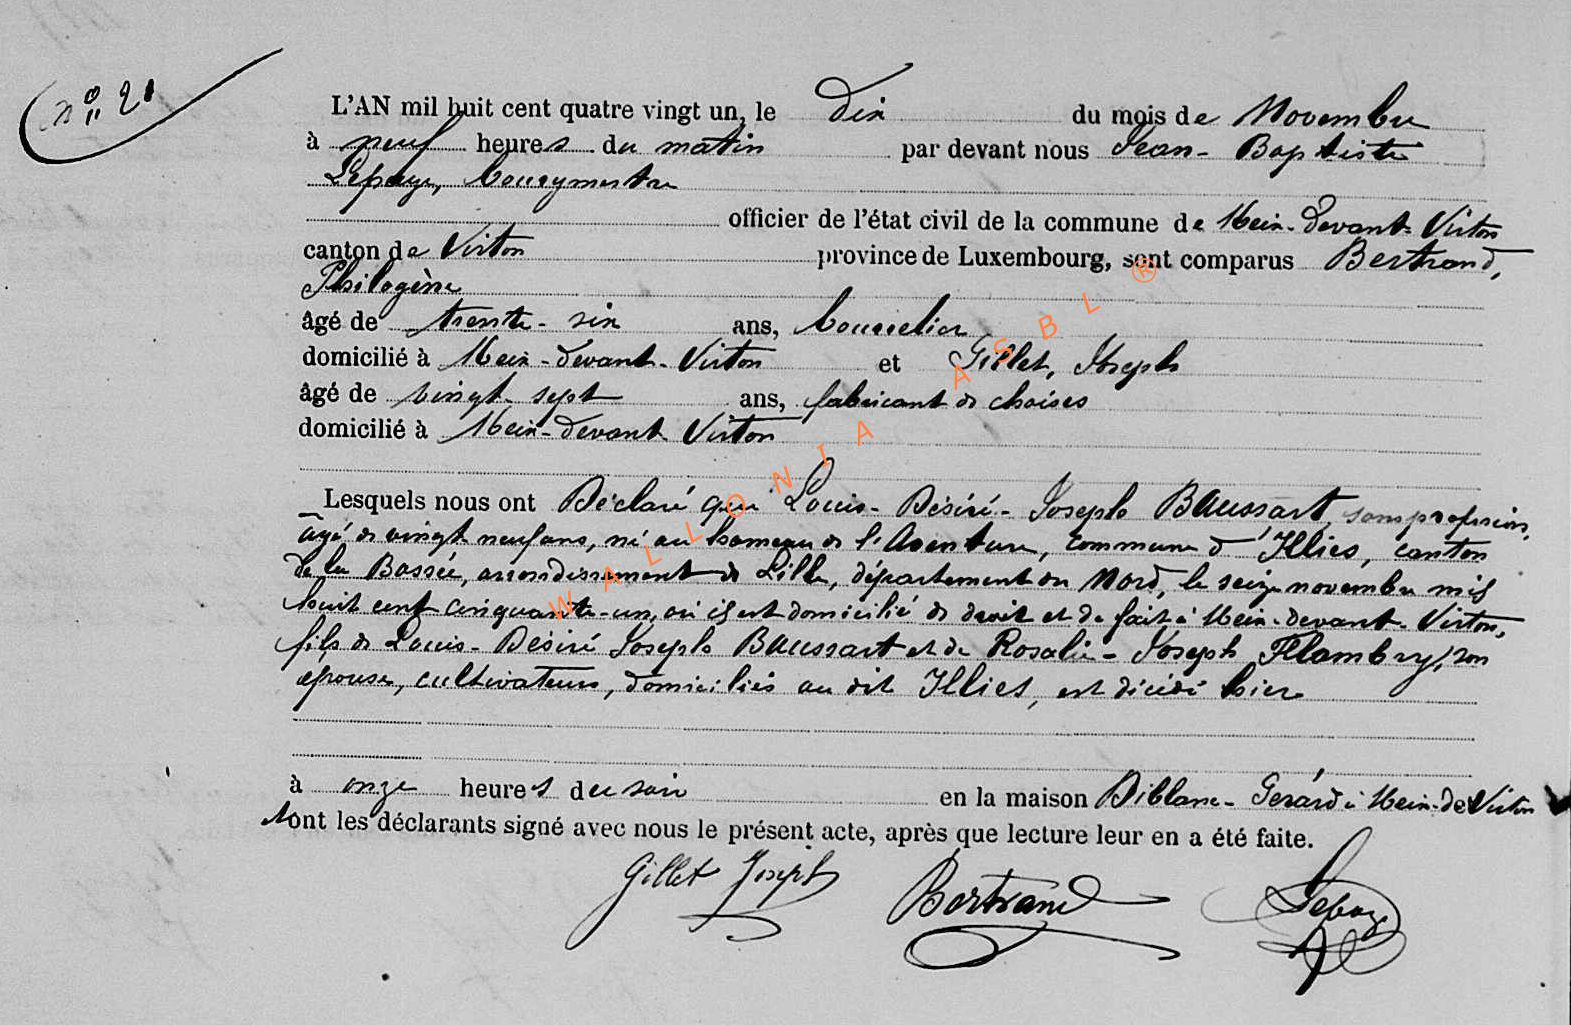 N° 21
L'AN mil huit cent quatre vingt un, le dix du mois de Novembre
à neuf heures du matin par devant nous Jean-Baptiste
Lepage, bourgmestre
officier de l'état civil de la commune de Meix-devant-Virton
canton de Virton province de Luxembourg, sont comparus Bertrand,
Philogène
âgé de trente-six ans, bourrelier
domicilié à Meix-devant-Virton et Gillet, Joseph
âgé de vingt-sept ans, fabricant de chaises
domicilié à Meix-devant-Virton
Lesquels nous ont Déclaré que Louis-Désiré-Joseph Baussart, sans profession,
âgé de vingt neuf ans, né au hameau de l'Aventure, commune d'Illies, canton
de la Bassée, arrondissement de Lille, département du Nord, le seize novembre mil
huit cent cinquante-un, où il est domicilié de droit et de fait à Meix-devant-Virton,
fils de Louis-Désiré Joseph Baussart et de Rosalie-Joseph Flambry, son
épouse, cultivateurs, domiciliés au dit Illies, est décédé hier
à onze heures du soir en la maison Gérard à Meix-dt-Virton
Ont les déclarants signé avec nous le présent acte, après que lecture leur en a été faite.
Gillet Joseph Bertrand Lepage
WALLONIA ASBL ®